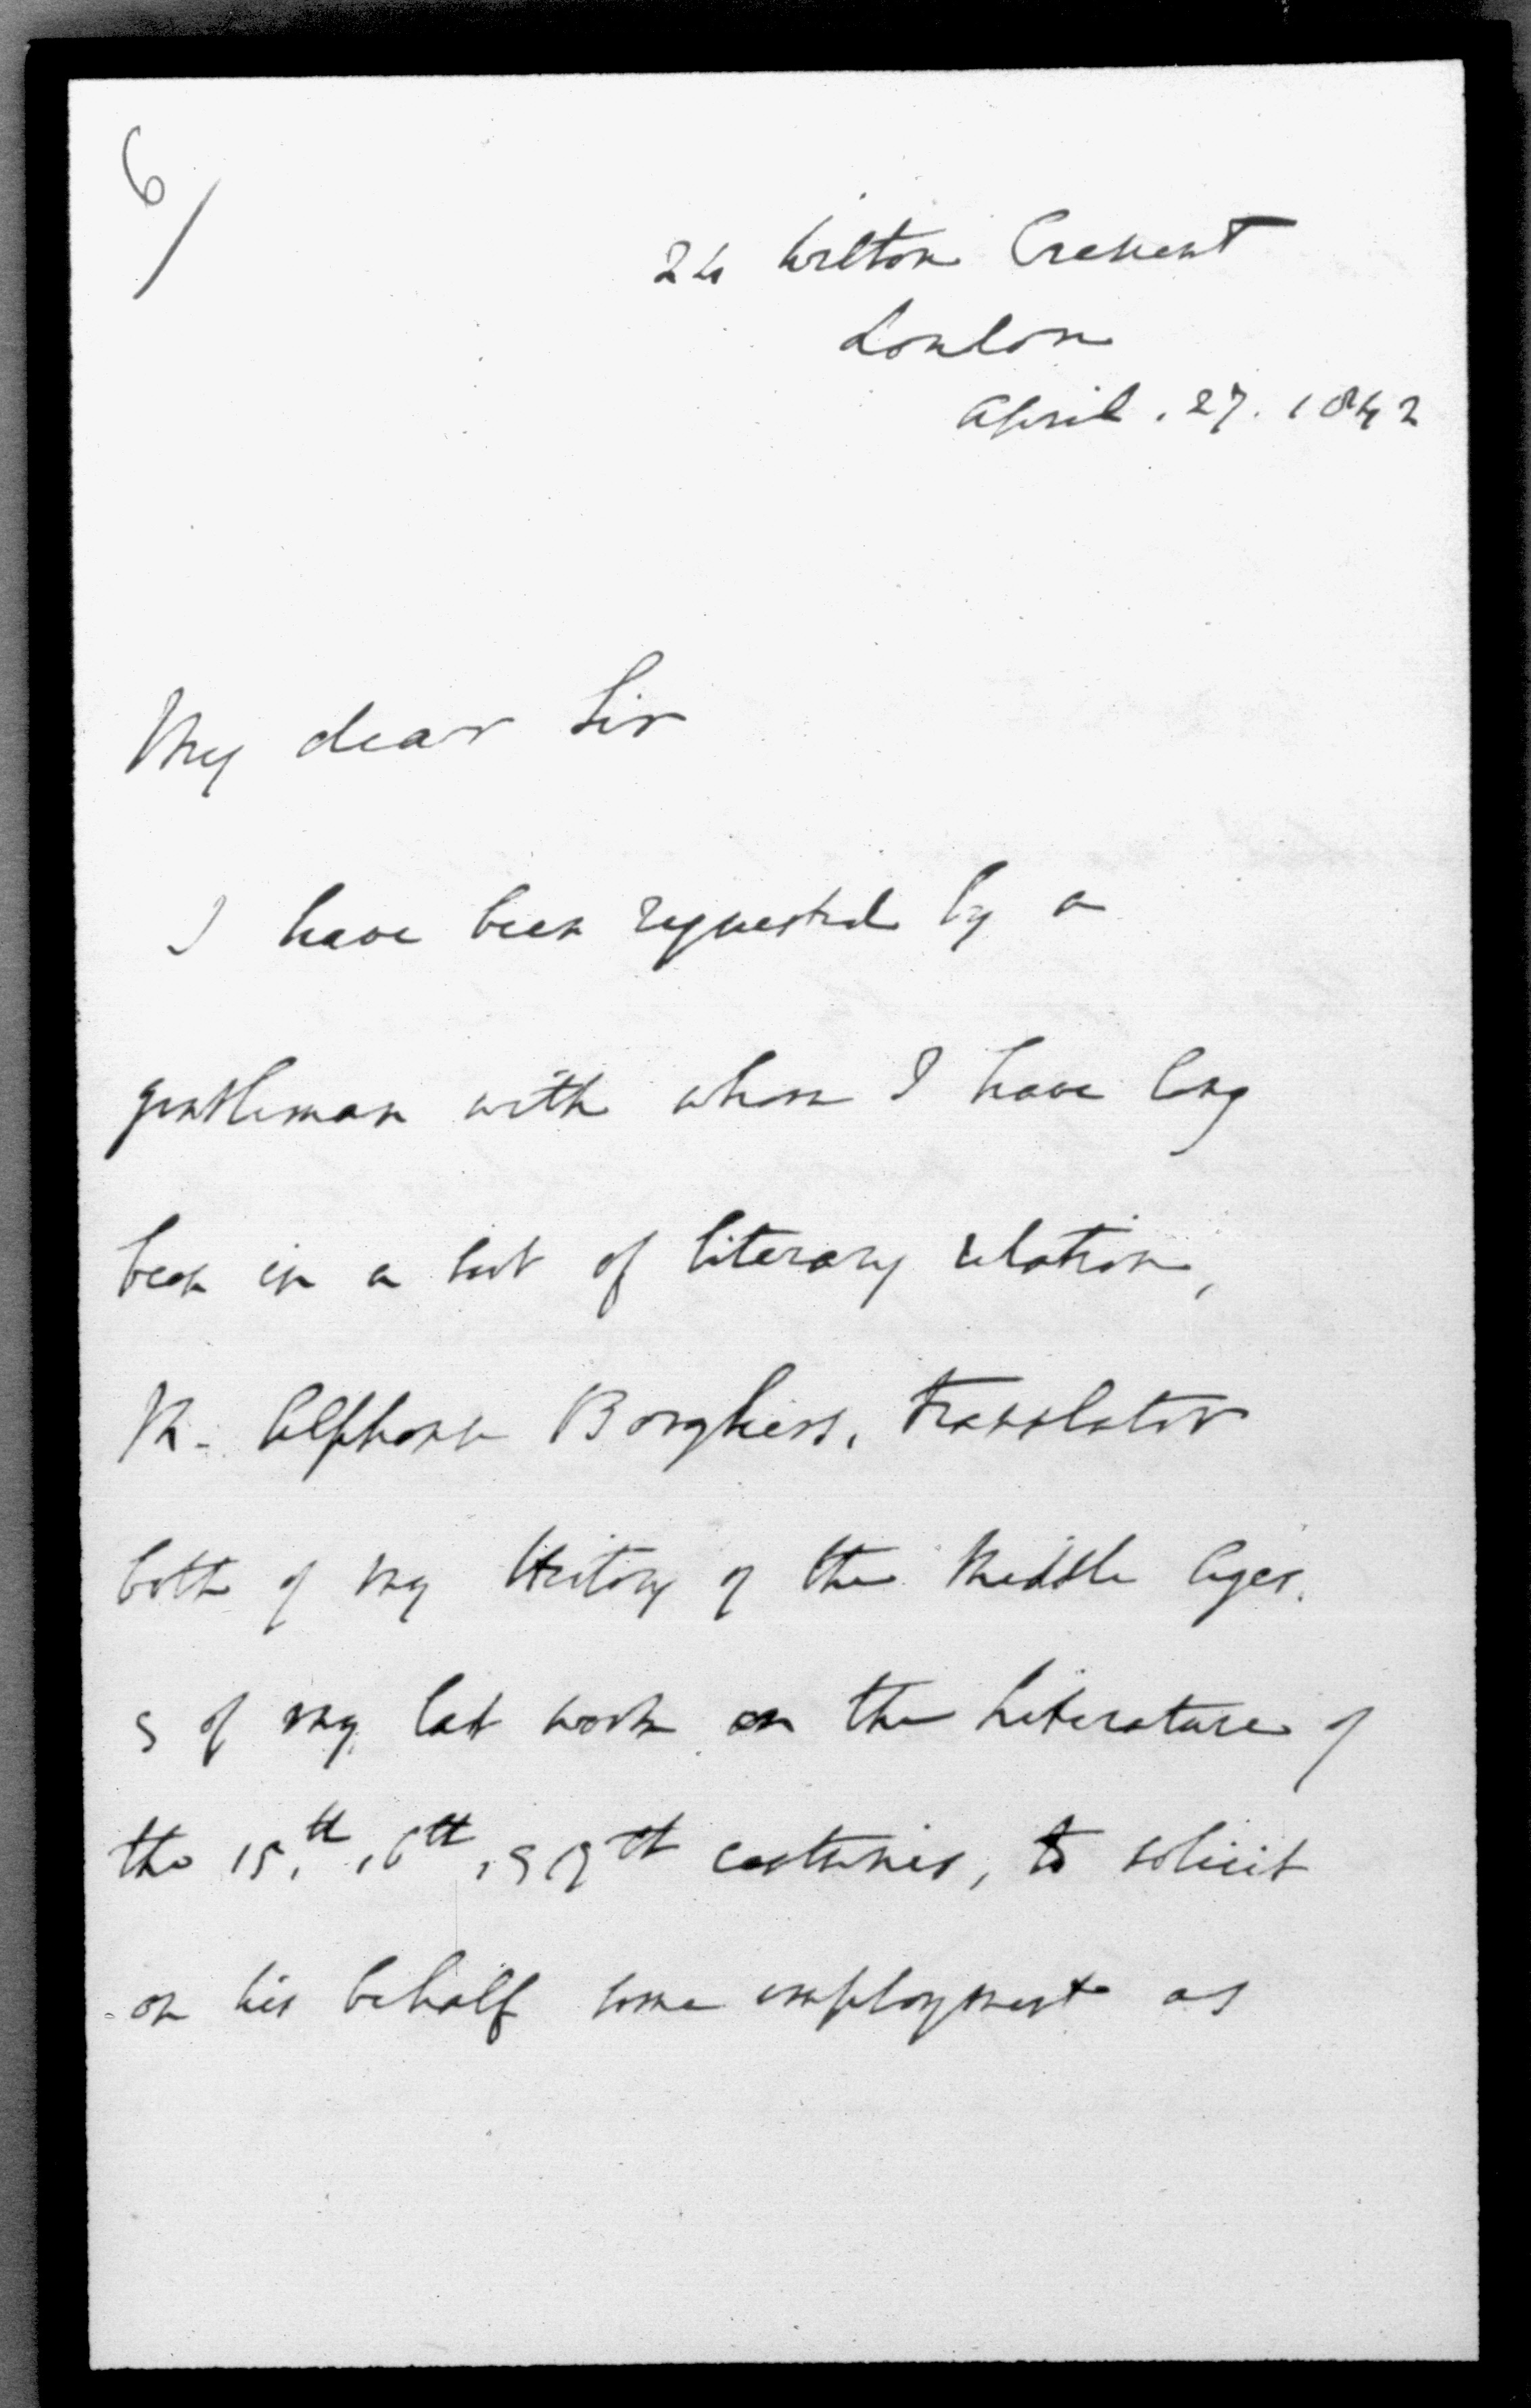 6/
24 Wilton Crescent
London
April. 27. 1842
My dear Sir
I have been requested by a
gentleman with whom I have long
been in a sort of literary relation,
M. Alphonse Borghers, translator
both of my History of the Middle Ages,
& of my last work on the Literature of
the 15th, 16th, & 17th centuries, to solicit
on his behalf some employment as